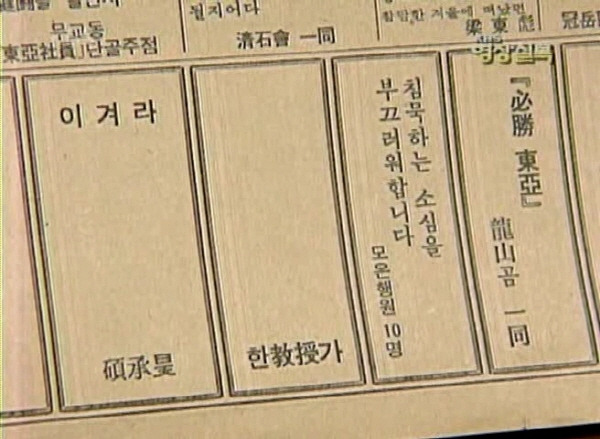 무교동
東亞社員」단골주점
될지어다
淸石會 一同
梁東彪
冠岳
영상실록
이겨라
碩承昊
한敎授가
침묵하는 소심을
부끄러워합니다
모은행원 10명
『必勝 東亞』
龍山곰 一同